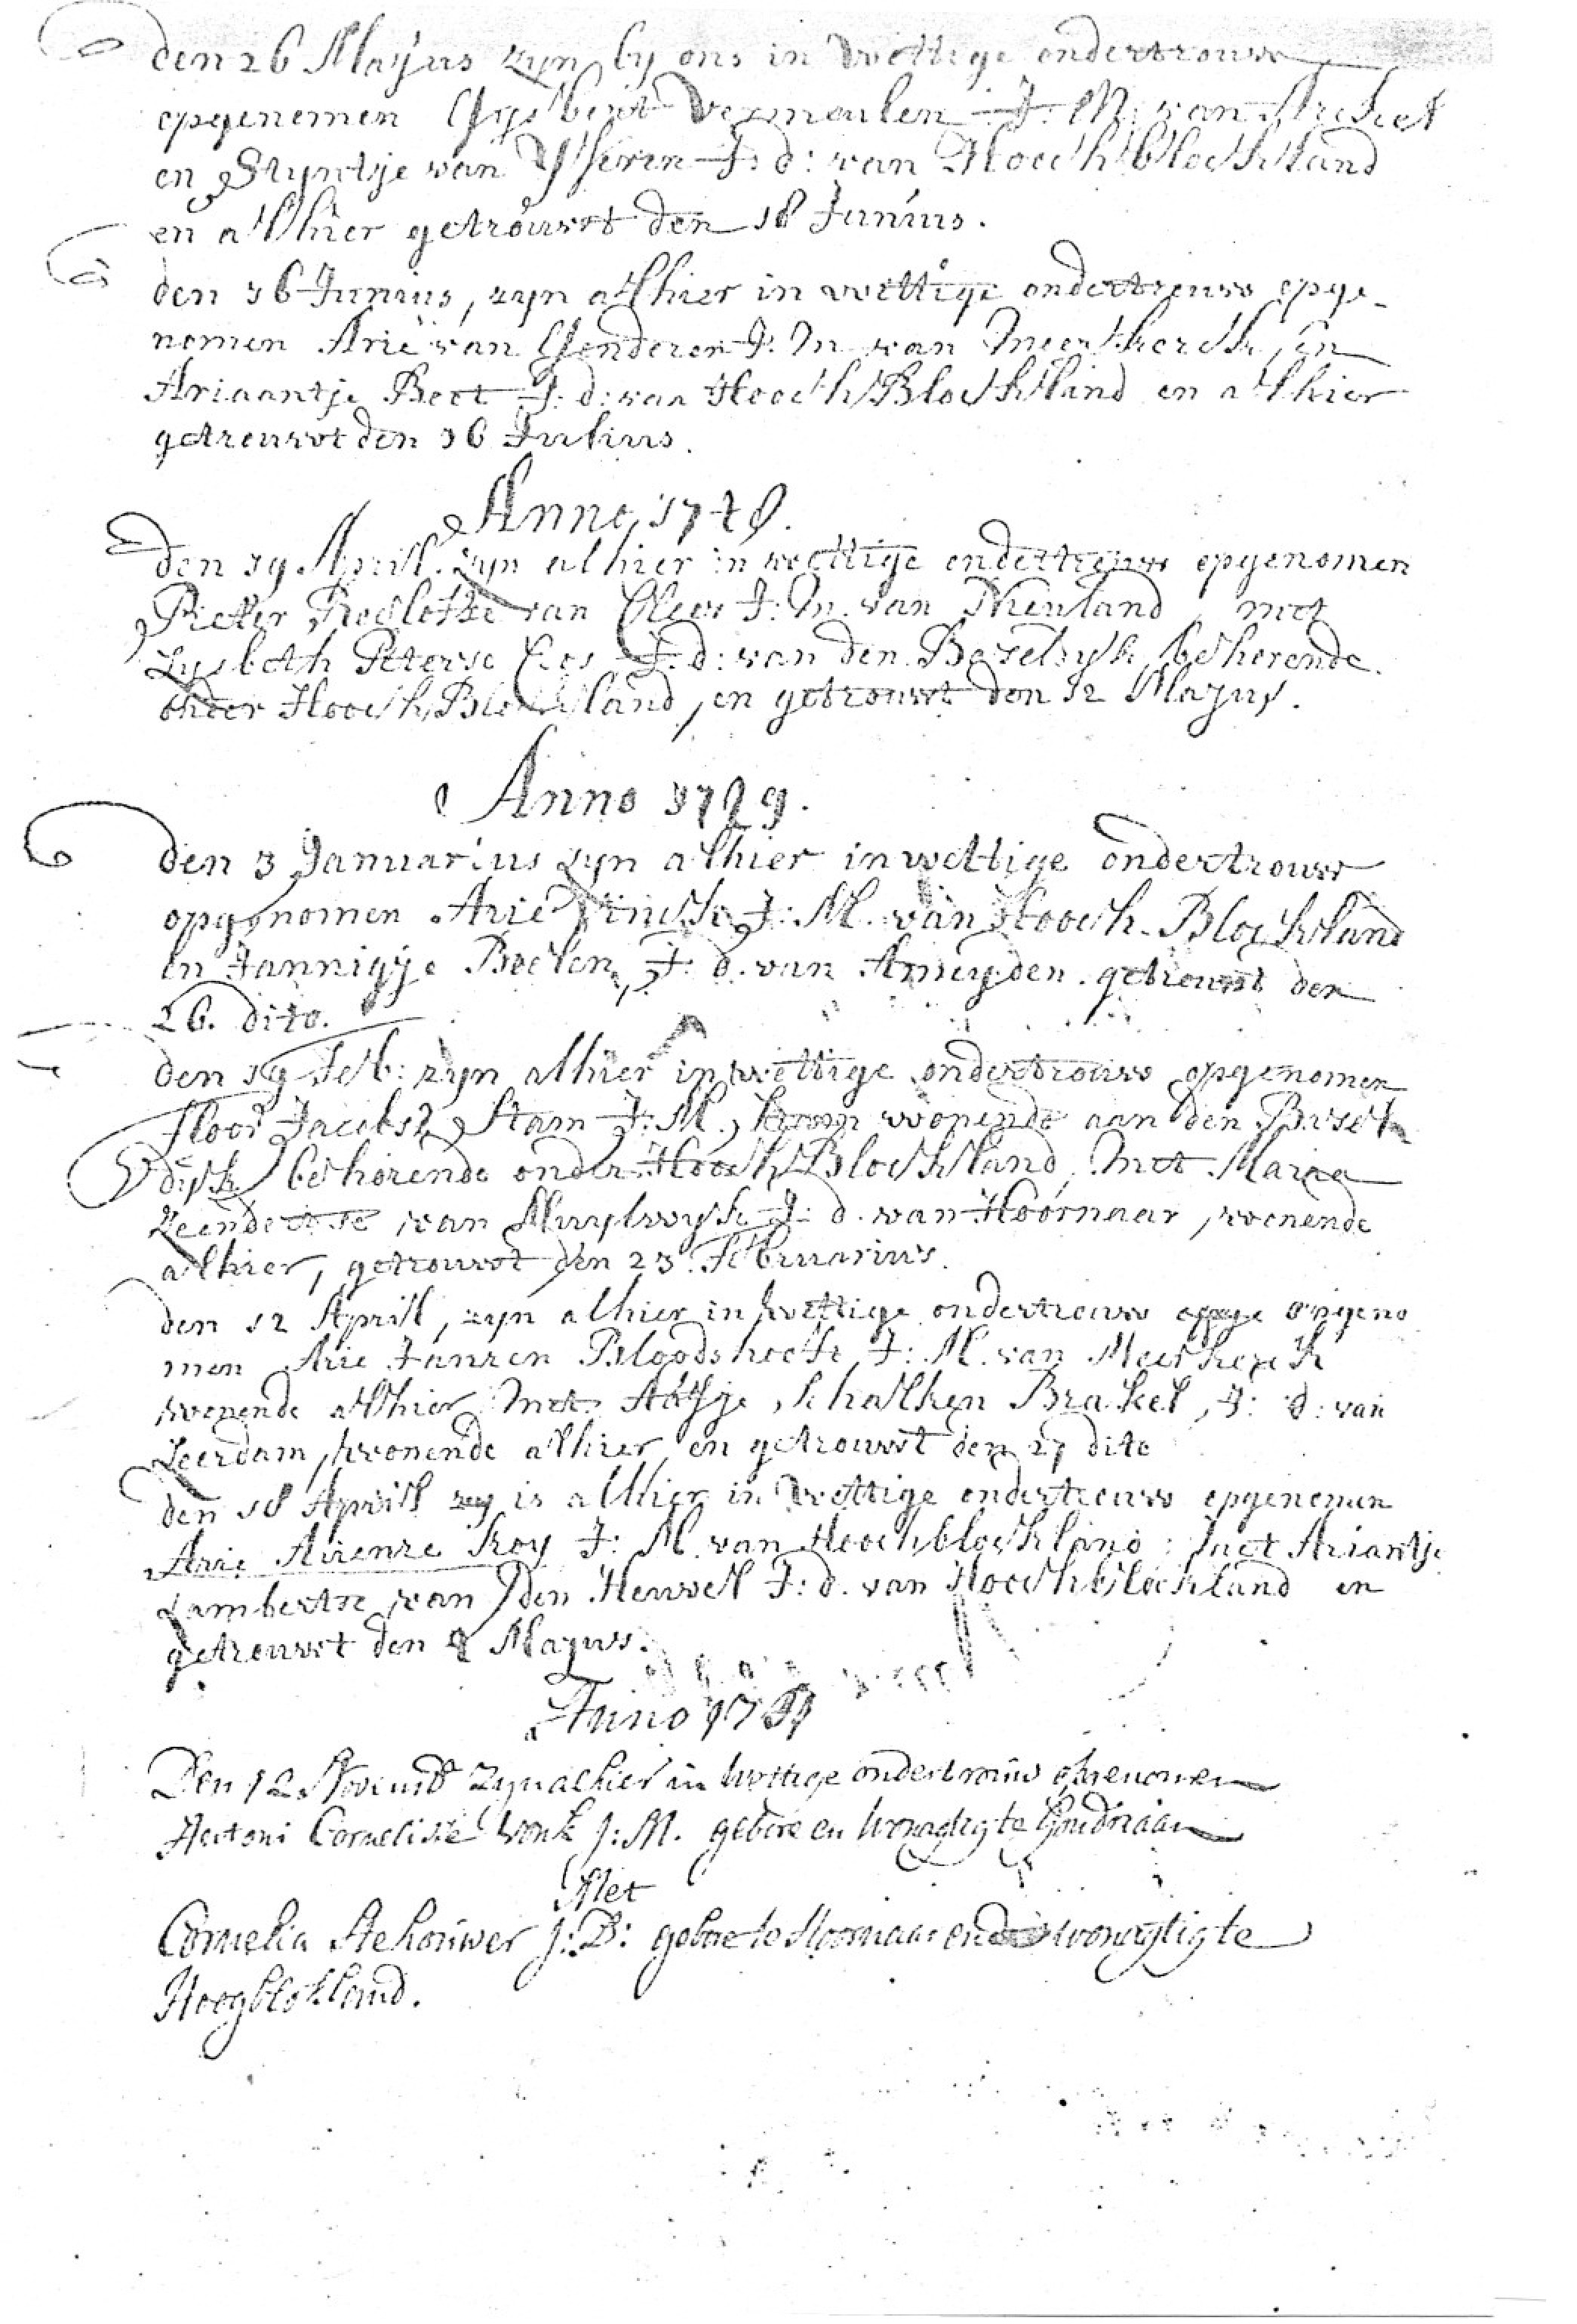 den 26 Mayus zyn by ons in wettige ondertrouw
opgenomen Gysbert Vermeulen J: M: van
en Styntje van J: d: van Hoochblockland
en alhier getrouwt den 18 Junius.
den 16 Junius, zyn alhier in wettige ondertrouw opge-
nomen Arie van Genderen J. M. van Meerkerck, en
Ariaantje Boet J: d: van Hooch Blockland en alhier
getrouwt den 16 Julius.
Anno 1748.
den 19 April. zyn alhier in wettige ondertrouw opgenomen
Pieter van Cleef J: M. van Nieuland, met
Lysbeth Peterse J: d: van den Bazeldyk behorende
onder Hooch Blockland, en getrouwt den 12 Mayus.
Anno 1749.
den 3 Januarius zyn alhier in wettige ondertrouw
opgenomen Arie J: M. van Hooch-Blockland
en Jannigje Boelen, J: d. van Ameyden. getrouwt den
26. dito.
den 19 Feb: zyn alhier in wettige ondertrouw opgenomen
floor Jacobsz Stam J: M., woonende aan den Basel
dyk behorende onder Hooch Blockland, met Maria
Leendertse van Muylwyk J: d. van Hoornaar, woonende
alhier, getrouwt den 23. Februarius.
den 12 April, zyn alhier in wettige ondertrouw opgeno
men Arie Janzen Bloodshooft, J: M. van Meerkerck
woonende alhier met Aatje Schalken Brakel, J: d: van
Leerdam, woonende alhier, en getrouwt den 27 dito
den 18 April is alhier in wettige ondertrouw opgenomen
Arie Arienze Kroy J: M. van Hoochblockland: met Ariantje
Lambertse van den Heuvel J: d. van Hoochblockland en
getrouwt den Mayus.
Anno
Den 12 Novemb zyn alhier in wettige ondertrouw opgenomen
Antoni Cornelisse Vonk J: M. gebore en woonagtig te Goudriaan
Met
Cornelia Stehouwer J: D: gebore te Hoornaar en woonagtig te
Hoogblokland.